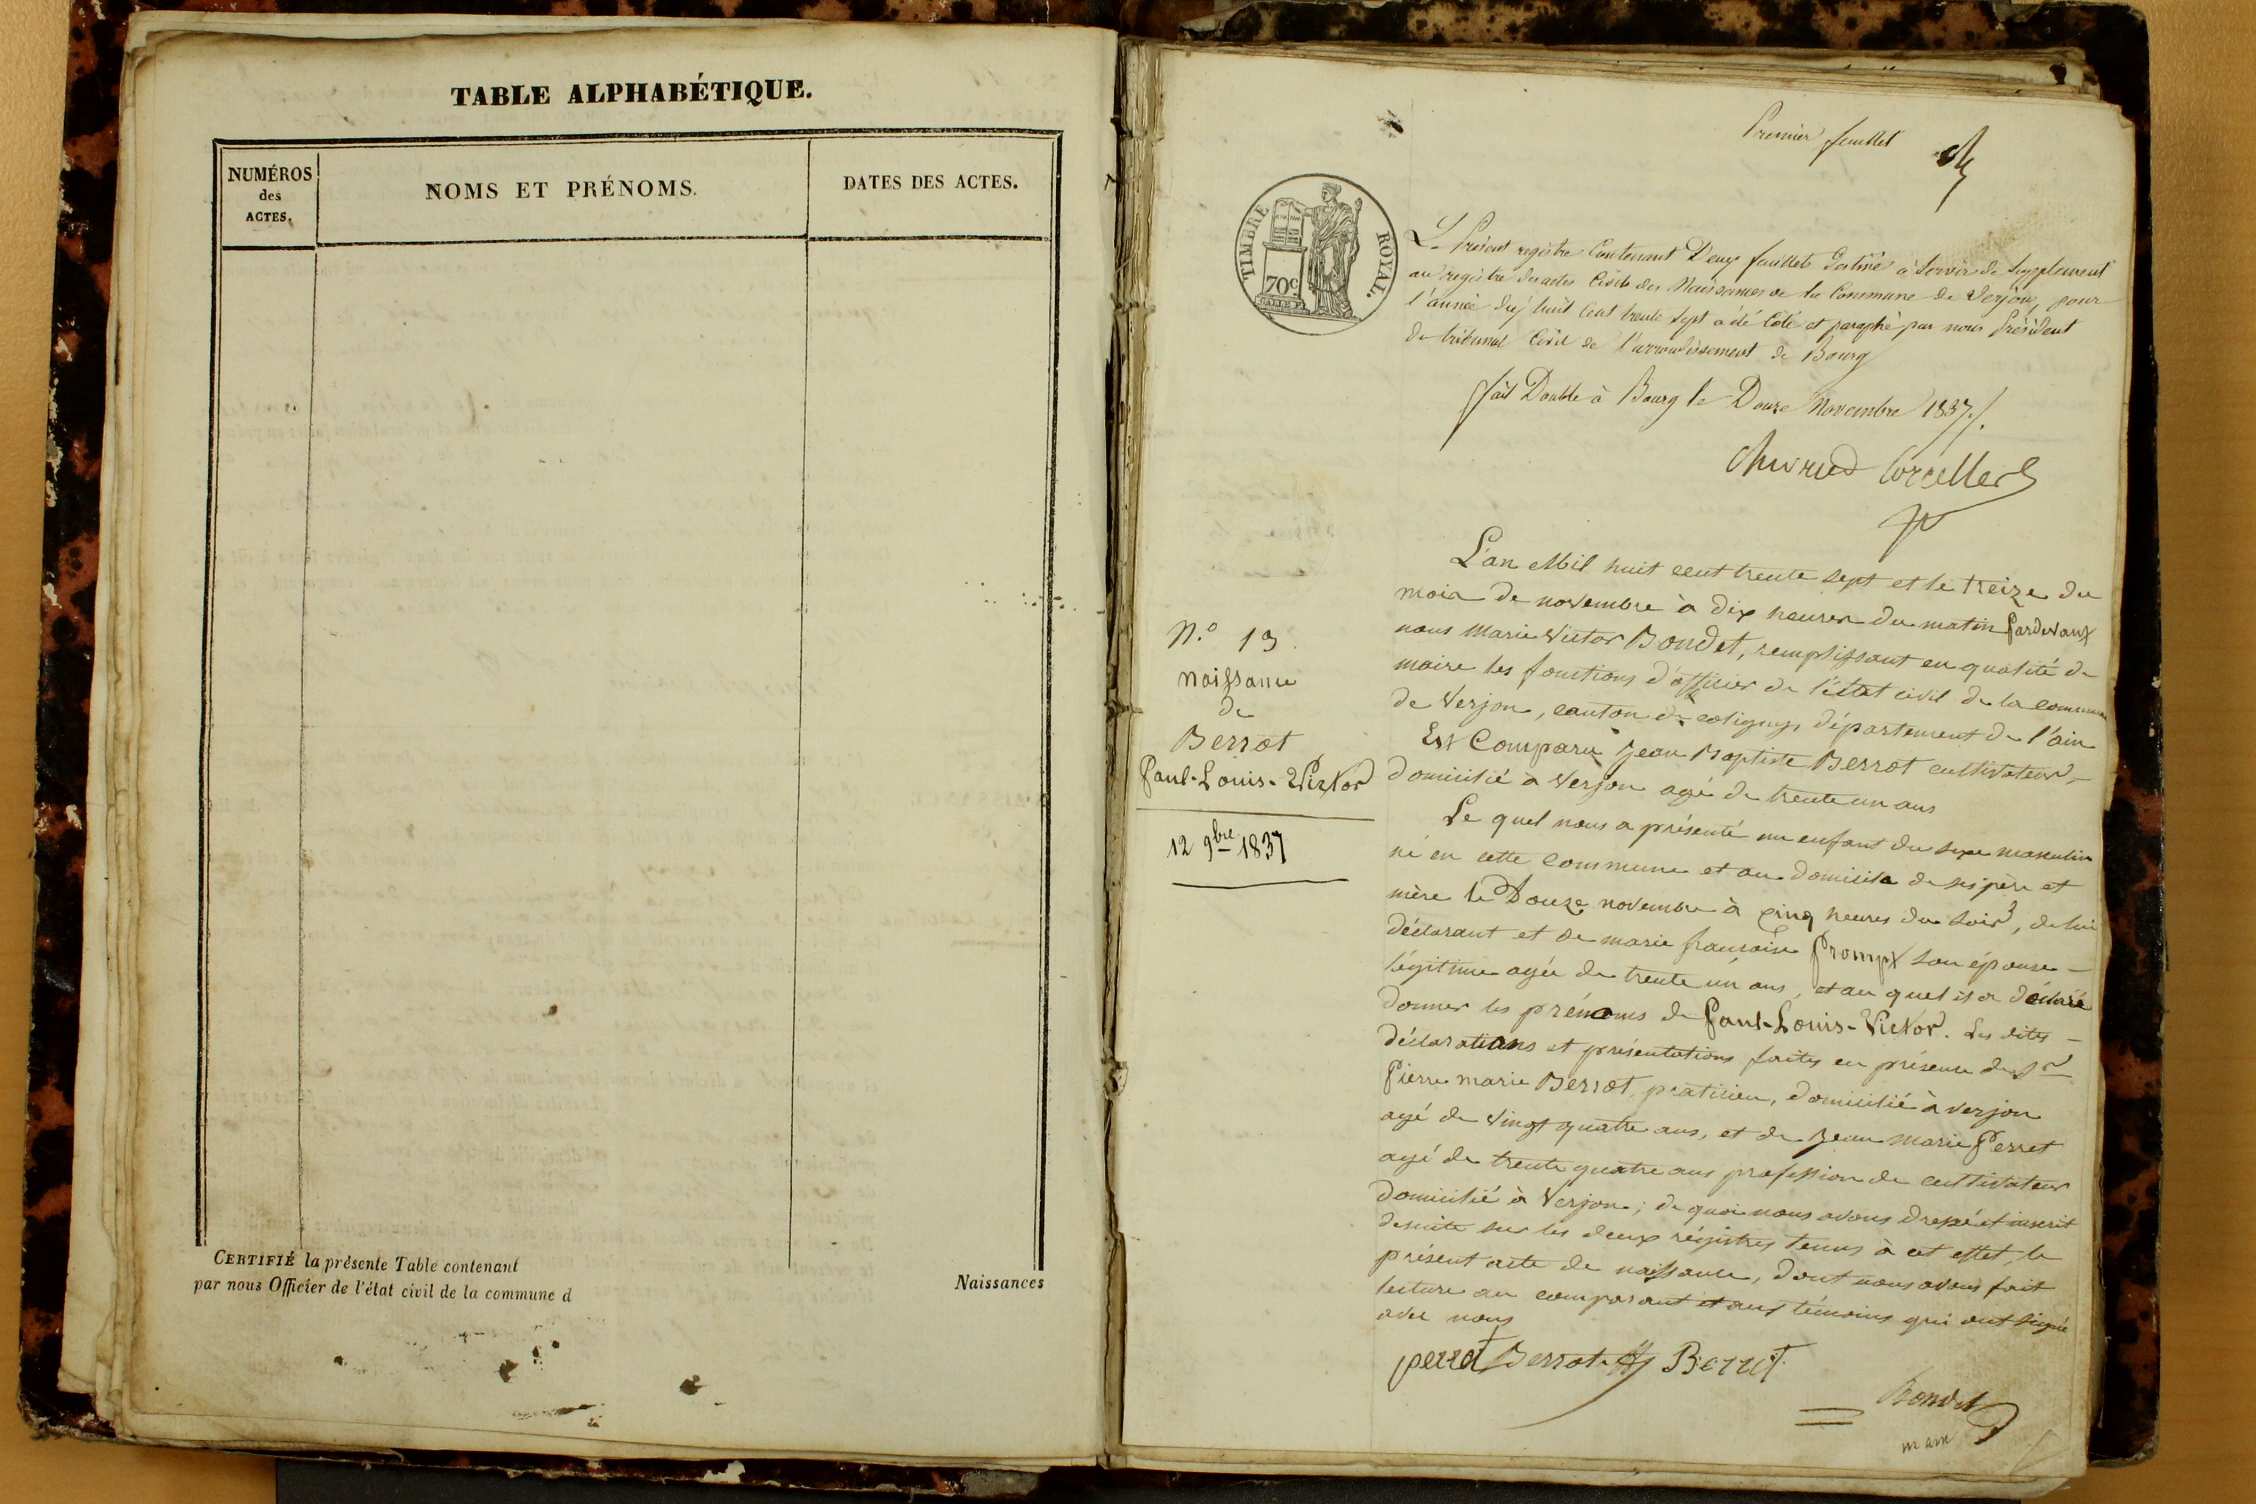 TABLE ALPHABÉTIQUE.
NUMÉROS
des
ACTES.
NOMS ET PRÉNOMS.
DATES DES ACTES.
CERTIFIÉ la présente Table contenant
par nous Officier de l'état civil de la commune d
Naissances
Premier feuillet
TIMBRE ROYAL.
70c
Le Présent registre Contenant Deux feuillets destiné à servir de supplement
au registre des actes Civils des Naissances de la Commune de Verjon, pour
l'année dix huit cent trente sept a été Coté et paraphé par nous Président
du tribunal Civil de l'arrondissement de Bourg
fait Double à Bourg le Douze Novembre 1837./.
N.º 13
naissance
de
Berrot
Paul-Louis-Victor
12 9bre 1837
L'an Mil huit cent trente sept et le treize du
mois de novembre à dix heures du matin Pardevant
nous Marie Victor Bondet, remplissant en qualité de
maire les fonctions d'officier de l'état civil de la commune
de Verjon, canton de coligny, département de l'ain
Est Comparu Jean Baptiste Berrot cultivateur -
domicilié à Verjon agé de trente un ans
Le quel nous a présenté un enfant du sexe masculin
né en cette commune et au domicile de ses père et
mère le Douze novembre à cinq heures du soir, de lui
déclarant et de marie francoise Prompt son épouse -
légitime agée de trente un ans, et au quel il a déclaré
donner les prénoms de Paul-Louis-Victor. Les dites -
déclarations et présentations faites en présence de Sr
Pierre marie Berrot, praticien, domicilié à verjon
agé de vingt quatre ans, et de Jean Marie Perret
agé de trente quatre ans profession de cultivateur
domicilié à Verjon; de quoi nous avons dressé et inscrit
desuite sur les deux régistres tenus à cet effet, le
présent acte de naissance, dont nous avons fait
lecture au comparant et aux témoins qui ont signé
avec nous
perret Berrot Berrot
Bondet
maire